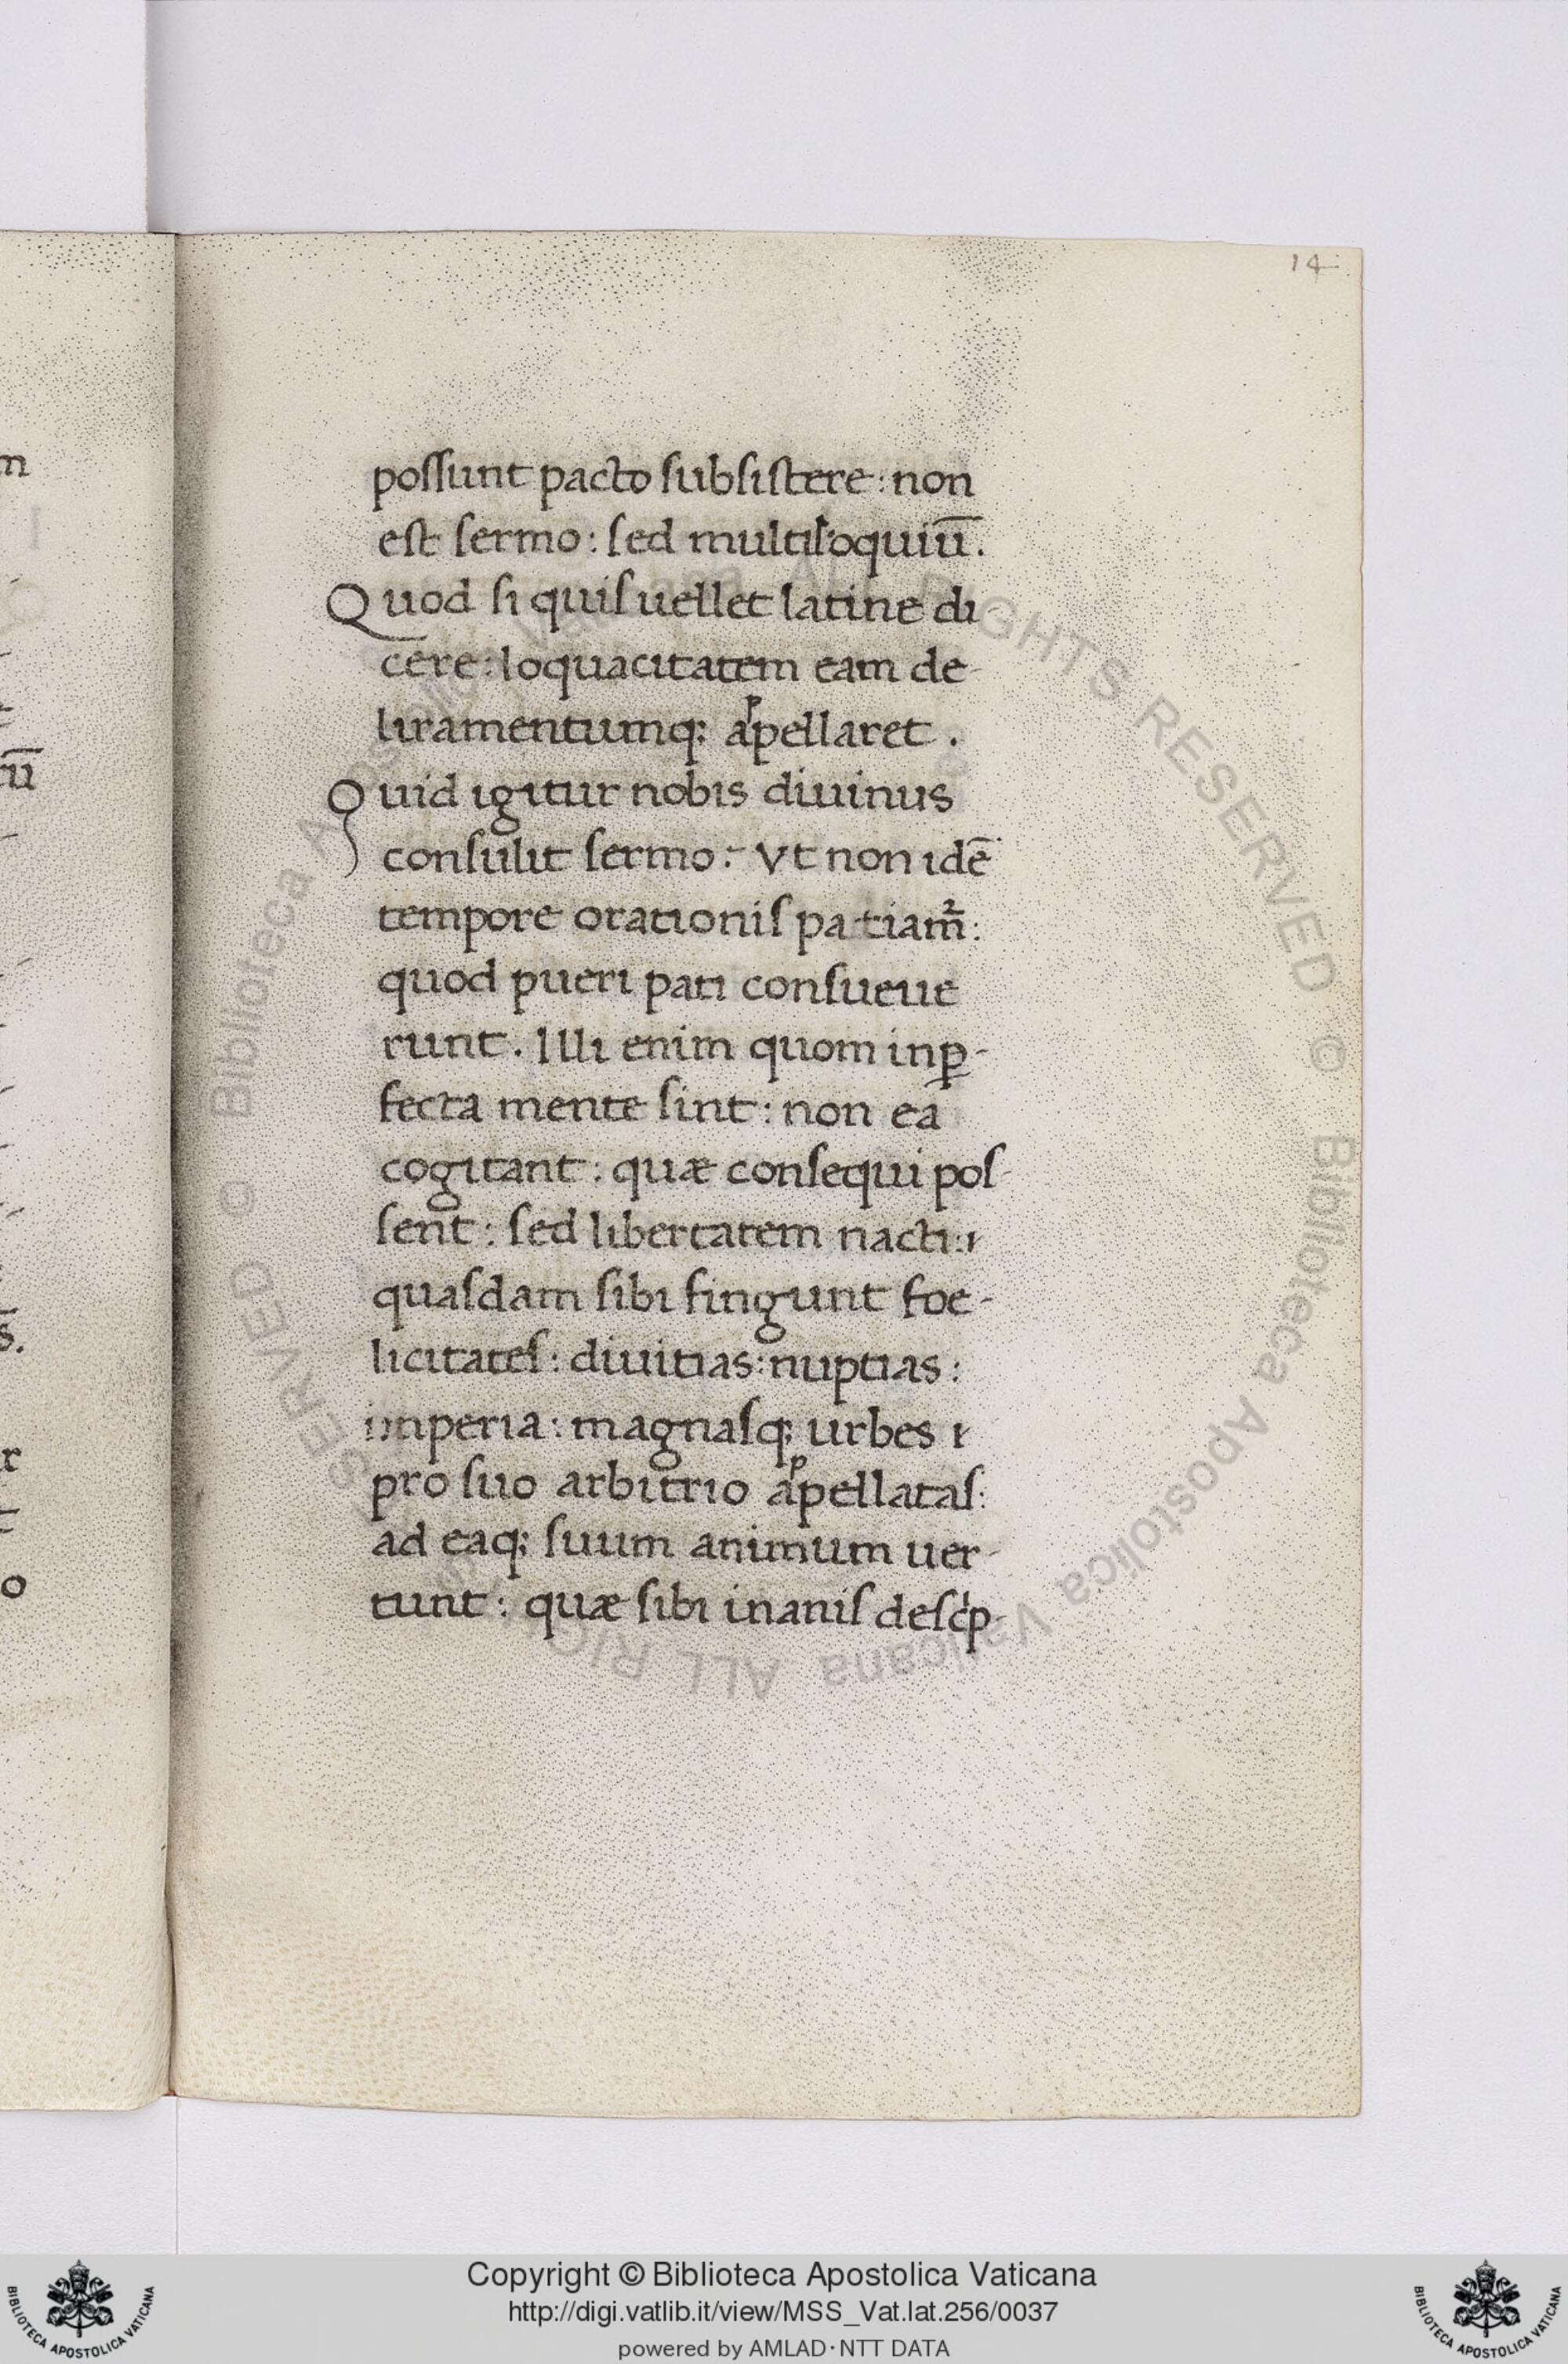 14
possunt pacto subsistere : non
est sermo : sed multiloquiū.
Quod si quis uellet latine di
cere : loquacitatem eam de-
liramentumq; appellaret .
Quid igitur nobis diuinus
consulit sermo : Vt non idē
tempore orationis patiam̄ :
quod pueri pati consueue
runt . Illi enim quom inꝑ-
fecta mente sint : non ea
cogitant : quæ consequi pos-
sent : sed libertatem nacti :
quasdam sibi fingunt foe-
licitates : diuitias : nuptias :
imperia : magnasq; urbes
pro suo arbitrio appellatas :
ad eaq; suum animum uer-
tunt : quæ sibi inanis descͥp-
m
ū
s̄.
r
o
Biblioteca Apostolica Vaticana ALL RIGHTS RESERVED © Biblioteca Apostolica Vaticana ALL RIGHTS RESERVED ©
Copyright © Biblioteca Apostolica Vaticana
http://digi.vatlib.it/view/MSS_Vat.lat.256/0037
powered by AMLAD · NTT DATA
BIBLIOTECA APOSTOLICA VATICANA
BIBLIOTECA APOSTOLICA VATICANA